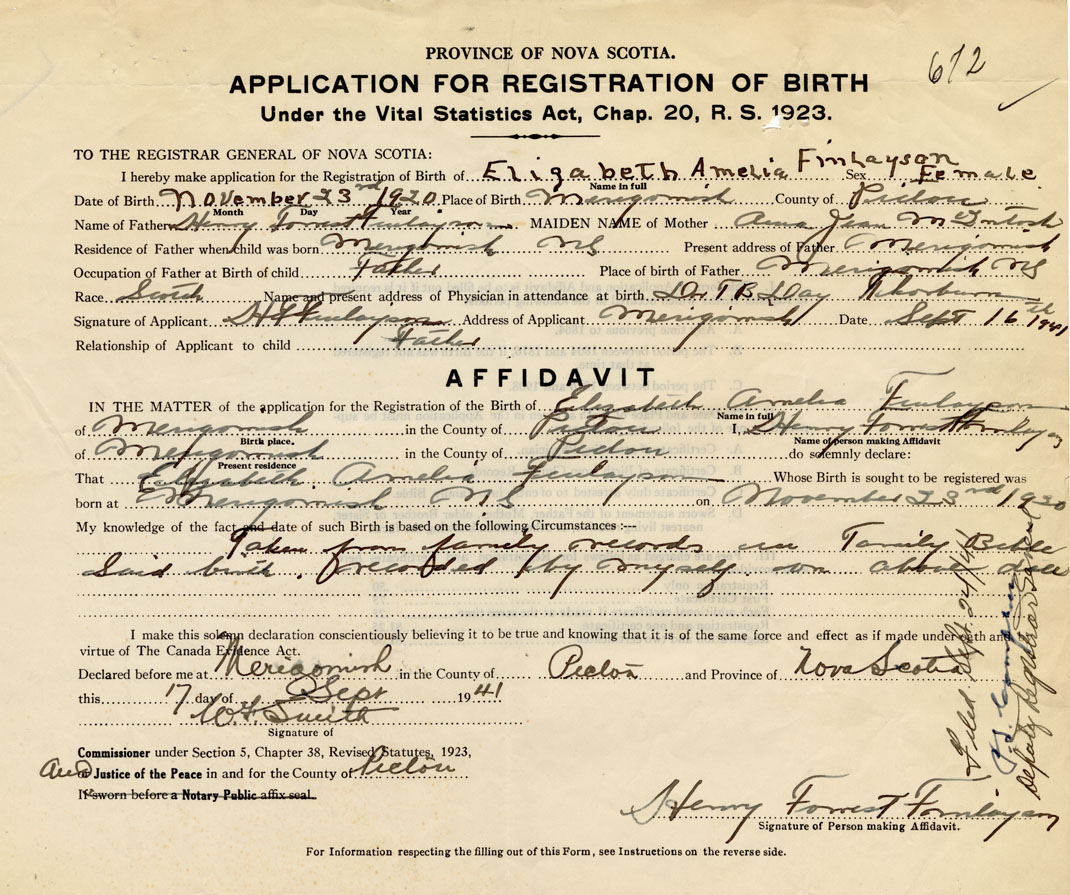 PROVINCE OF NOVA SCOTIA.
672
APPLICATION FOR REGISTRATION OF BIRTH
Under the Vital Statistics Act, Chap. 20, R. S. 1923.
TO THE REGISTRAR GENERAL OF NOVA SCOTIA:
I hereby make application for the Registration of Birth of Elizabeth Amelia Finlayson Sex Female
Name in full
Date of Birth November 23rd 1920 Place of Birth Merigomish County of Pictou
Month Day Year
Name of Father Henry Forrest Finlayson MAIDEN NAME of Mother Anna Jean McIntosh
Residence of Father when child was born Merigomish NS Present address of Father Merigomish
Occupation of Father at Birth of child Father Place of birth of Father Merigomish NS
Race Scotch Name and present address of Physician in attendance at birth Dr T B Day Thorburn
Signature of Applicant H F Finlayson Address of Applicant Merigomish Date Sept 16th 1941
Relationship of Applicant to child Father
AFFIDAVIT
IN THE MATTER of the application for the Registration of the Birth of Elizabeth Amelia Finlayson
Name in full
of Merigomish in the County of Pictou I, Henry Forrest Finlayson
Birth place. Name of person making Affidavit
of Merigomish in the County of Pictou do solemnly declare:
Present residence
That Elizabeth Amelia Finlayson Whose Birth is sought to be registered was
born at Merigomish NS on November 23rd 1920
My knowledge of the fact and date of such Birth is based on the following Circumstances :---
Taken from family records in Family Bible
Said birth recorded by myself on above date
I make this solemn declaration conscientiously believing it to be true and knowing that it is of the same force and effect as if made under oath and
virtue of The Canada Evidence Act.
Declared before me at Merigomish in the County of Pictou and Province of Nova Scotia
this 17 day of Sept 1941
W. F. Smith
Signature of
Commissioner under Section 5, Chapter 38, Revised Statutes, 1923,
and Justice of the Peace in and for the County of Pictou
If sworn before a Notary Public affix seal.
Filed Sept. 24/41
Deputy Registrar General
Henry Forrest Finlayson
Signature of Person making Affidavit.
For Information respecting the filling out of this Form, see Instructions on the reverse side.